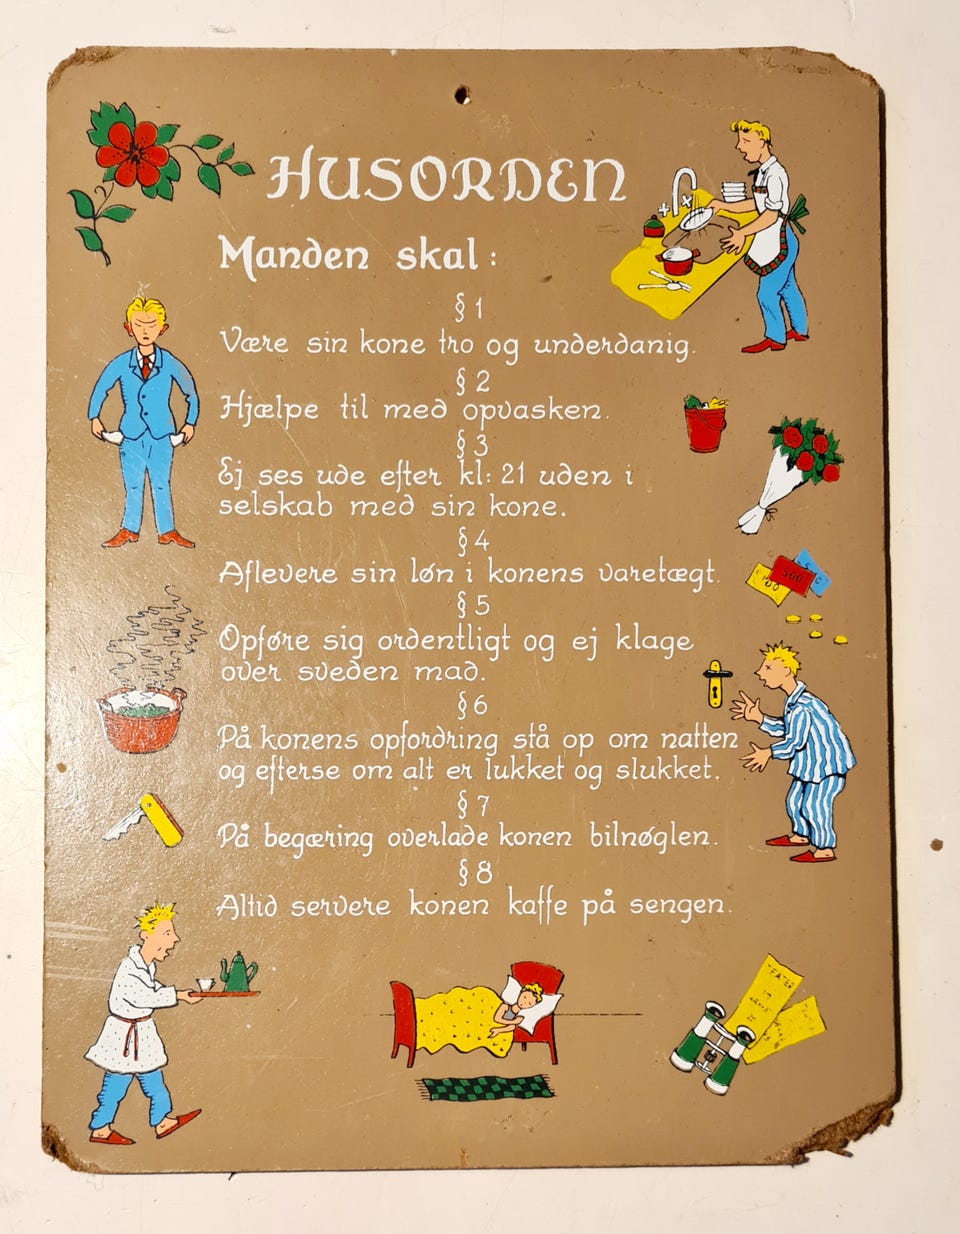 HUSORDEN
Manden skal:
§ 1
Være sin kone tro og underdanig.
§ 2
Hjælpe til med opvasken.
§ 3
Ej ses ude efter kl: 21 uden i
selskab med sin kone.
§ 4
Aflevere sin løn i konens varetægt.
§ 5
Opføre sig ordentligt og ej klage
over sveden mad.
§ 6
På konens opfordring stå op om natten
og efterse om alt er lukket og slukket.
§ 7
På begæring overlade konen bilnøglen.
§ 8
Altid servere konen kaffe på sengen.
500
TEATER